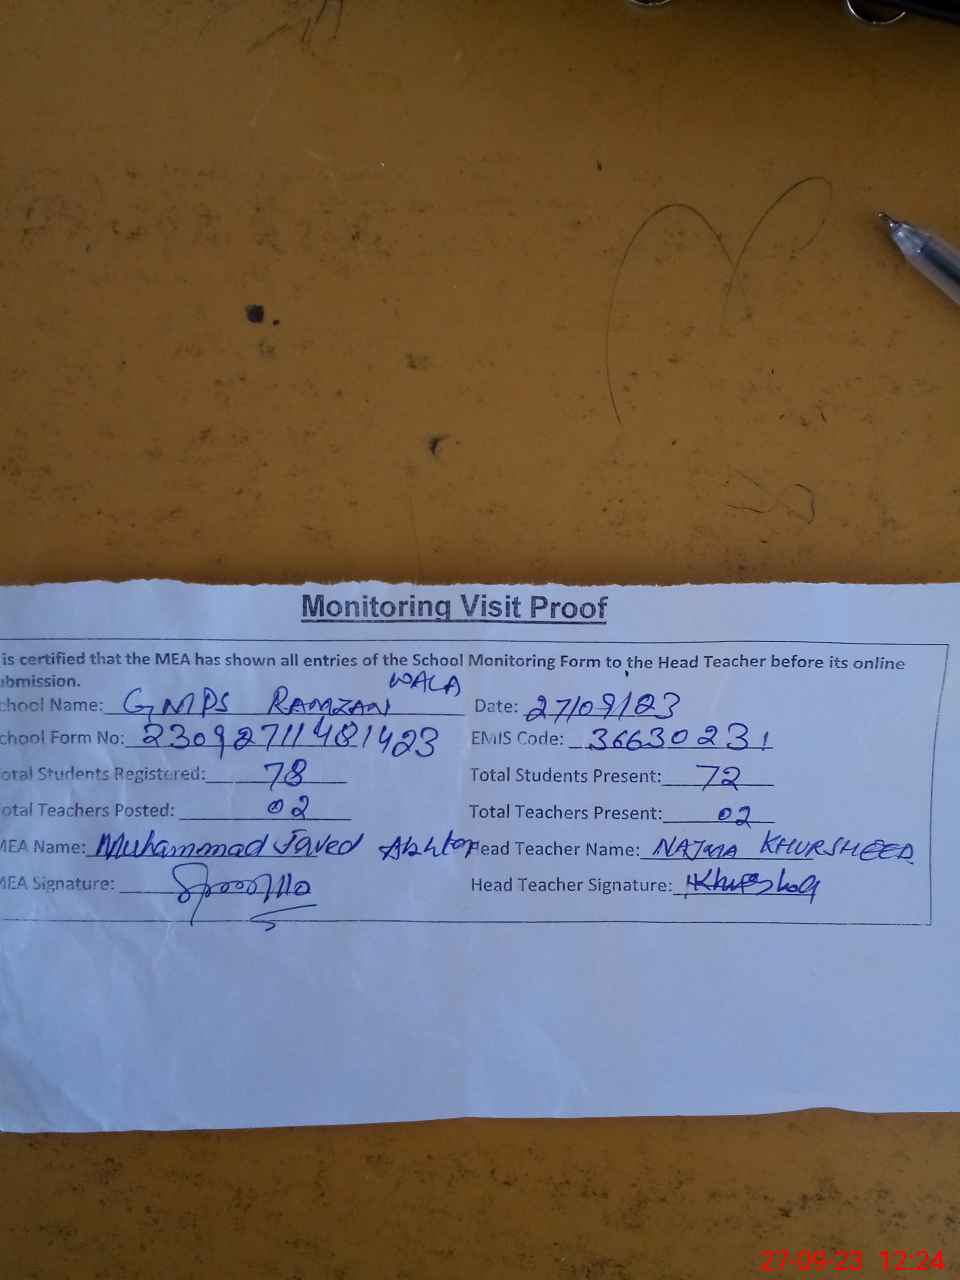 Monitoring Visit Proof
is certified that the MEA has shown all entries of the School Monitoring Form to the Head Teacher before its online
bmission.
chool Name: GMPS RAMZAN WALA Date: 27/09/23
chool Form No: 23092711481423 EMIS Code: 36630231
otal Students Registered: 78 Total Students Present: 72
otal Teachers Posted: 02 Total Teachers Present: 02
MEA Name: Muhammad Javed Akhtar Head Teacher Name: NAJMA KHURSHEED
MEA Signature: Head Teacher Signature:
27-09-23 12:24